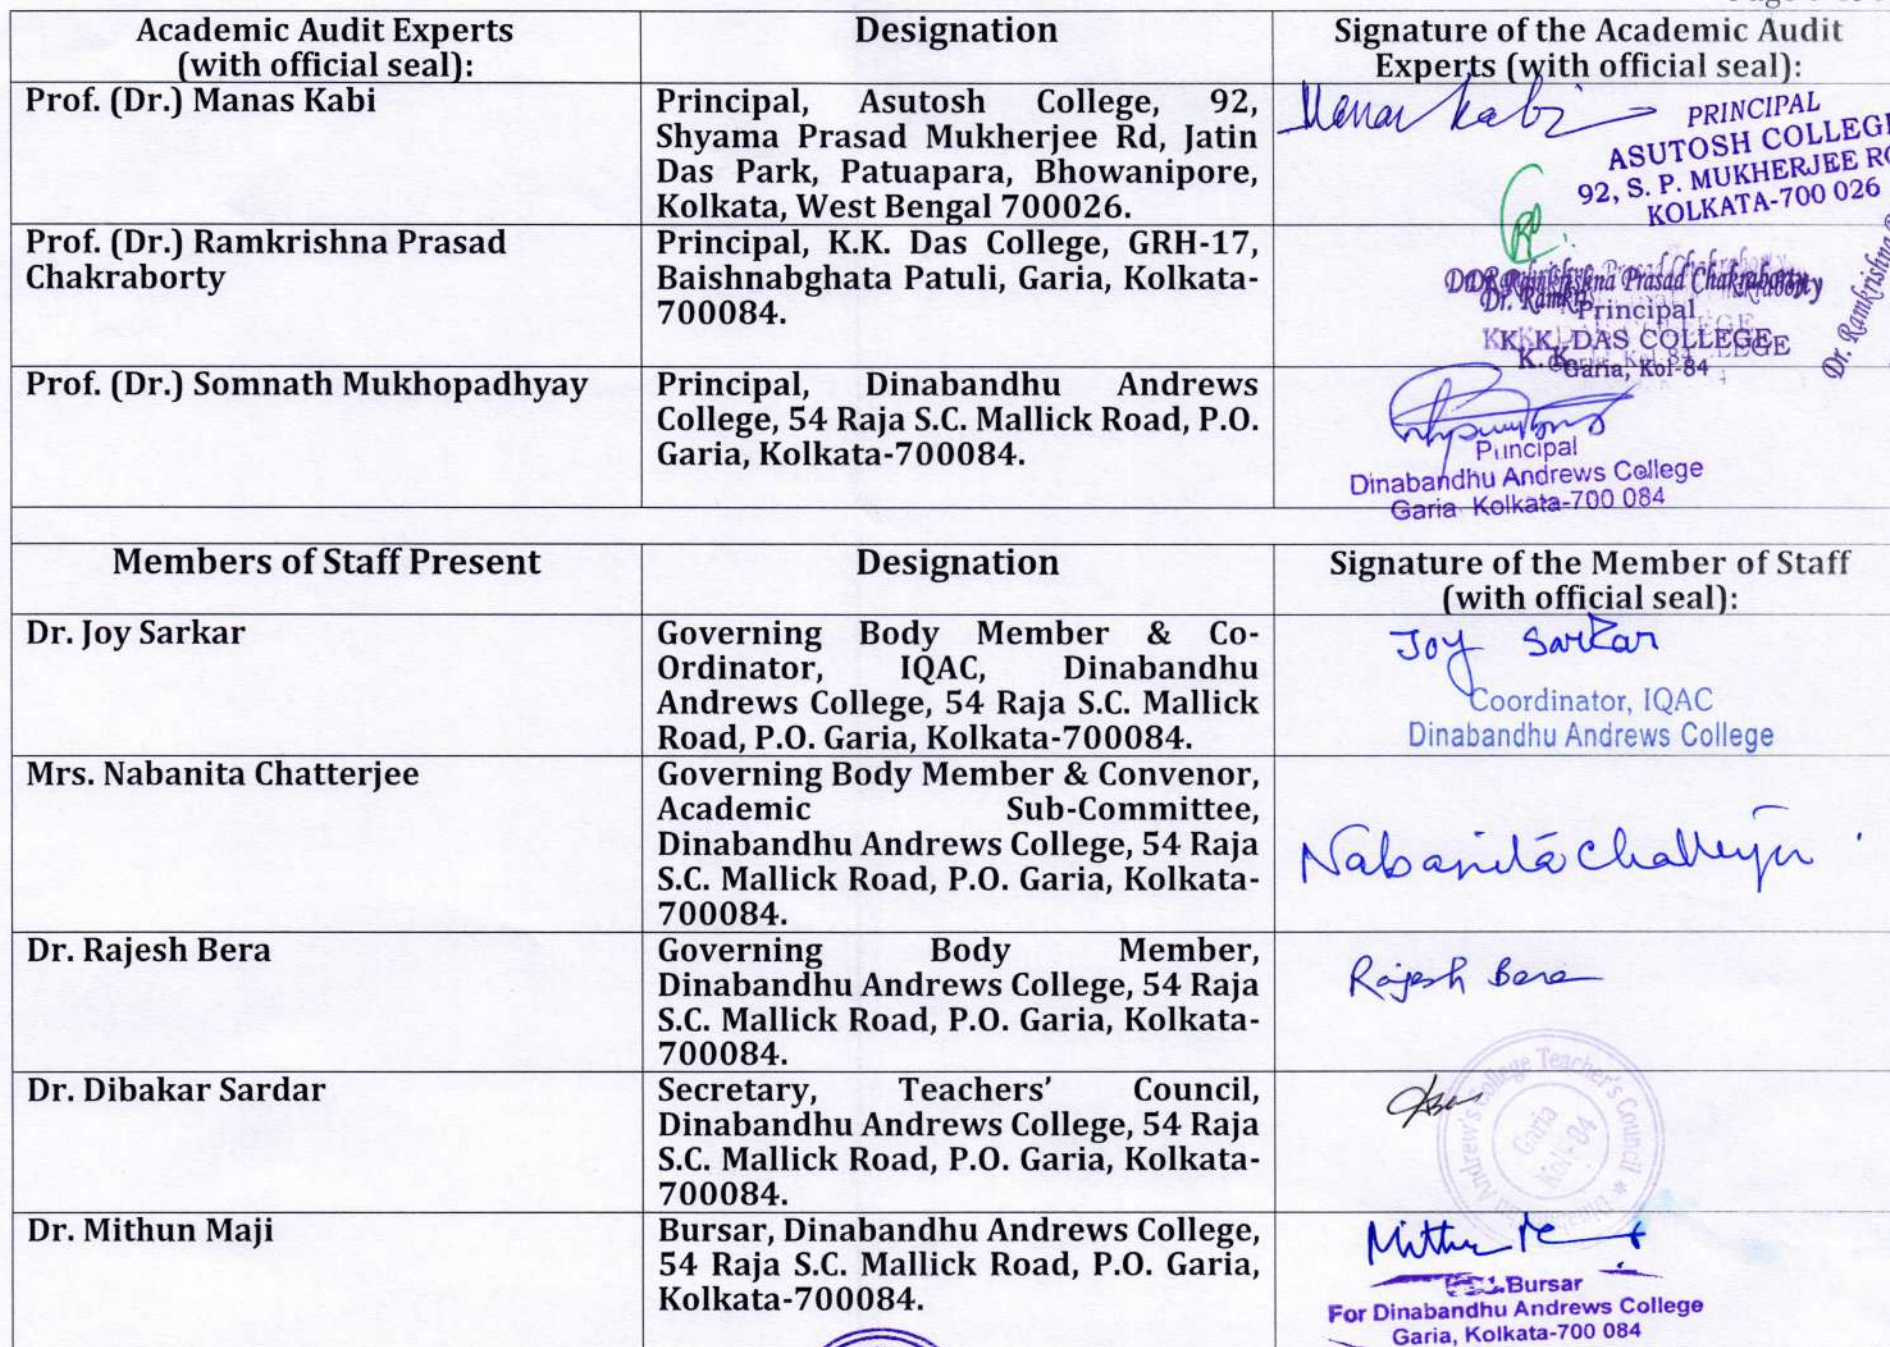 Academic Audit Experts
(with official seal):
Designation
Signature of the Academic Audit
Experts (with official seal):
Prof. (Dr.) Manas Kabi
Principal, Asutosh College, 92,
Shyama Prasad Mukherjee Rd, Jatin
Das Park, Patuapara, Bhowanipore,
Kolkata, West Bengal 700026.
Manas Kabi
PRINCIPAL
ASUTOSH COLLEGE
92, S. P. MUKHERJEE RO
KOLKATA-700 026
Prof. (Dr.) Ramkrishna Prasad
Chakraborty
Principal, K.K. Das College, GRH-17,
Baishnabghata Patuli, Garia, Kolkata-
700084.
Dr. Ramkrishna Prasad Chakraborty
Principal
K. K. DAS COLLEGE
Garia, Kol-84
Dr. Ramkrishna
Prof. (Dr.) Somnath Mukhopadhyay
Principal, Dinabandhu Andrews
College, 54 Raja S.C. Mallick Road, P.O.
Garia, Kolkata-700084.
Principal
Dinabandhu Andrews College
Garia Kolkata-700 084
Members of Staff Present
Designation
Signature of the Member of Staff
(with official seal):
Dr. Joy Sarkar
Governing Body Member & Co-
Ordinator, IQAC, Dinabandhu
Andrews College, 54 Raja S.C. Mallick
Road, P.O. Garia, Kolkata-700084.
Joy Sarkar
Coordinator, IQAC
Dinabandhu Andrews College
Mrs. Nabanita Chatterjee
Governing Body Member & Convenor,
Academic Sub-Committee,
Dinabandhu Andrews College, 54 Raja
S.C. Mallick Road, P.O. Garia, Kolkata-
700084.
Nabanita Chatterjee
Dr. Rajesh Bera
Governing Body Member,
Dinabandhu Andrews College, 54 Raja
S.C. Mallick Road, P.O. Garia, Kolkata-
700084.
Rajesh Bera
Dr. Dibakar Sardar
Secretary, Teachers’ Council,
Dinabandhu Andrews College, 54 Raja
S.C. Mallick Road, P.O. Garia, Kolkata-
700084.
Dinabandhu Andrew's College Teacher's Council *
Garia
Kol-84
Dr. Mithun Maji
Bursar, Dinabandhu Andrews College,
54 Raja S.C. Mallick Road, P.O. Garia,
Kolkata-700084.
Mithun
Bursar
For Dinabandhu Andrews College
Garia, Kolkata-700 084